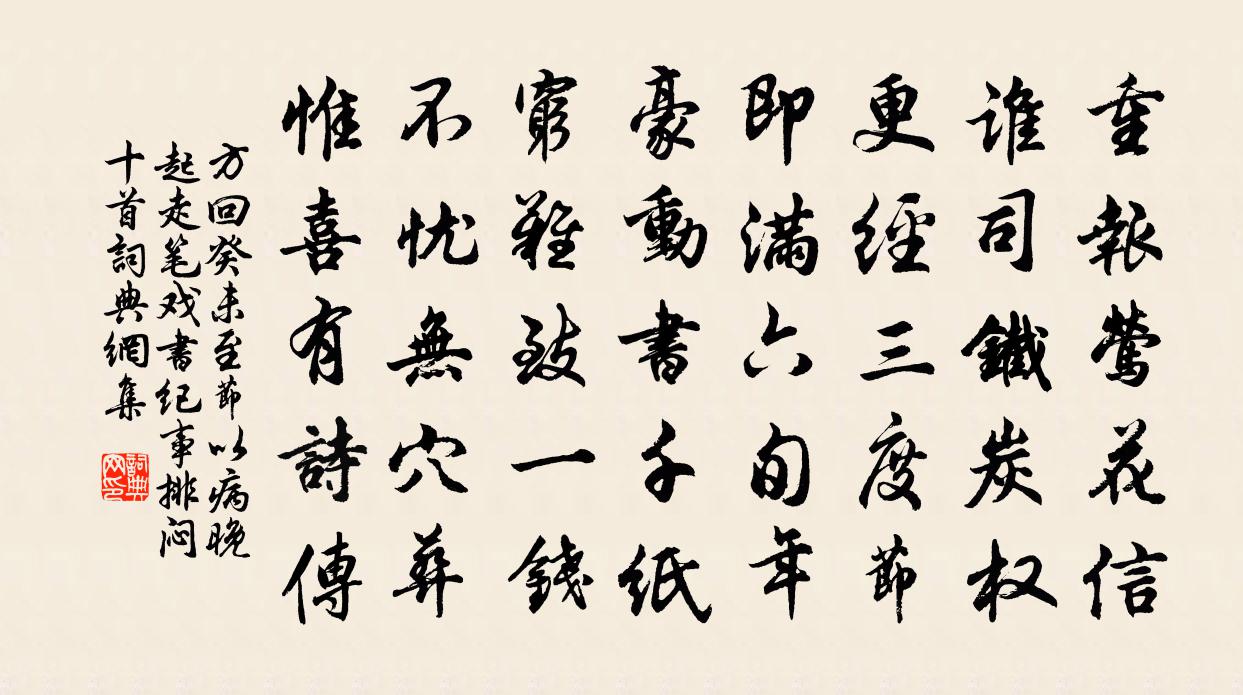 重報鶯花信
谁司鐵炭权
更經三度節
即滿六旬年
豪動書千紙
窮難致一錢
不忧無穴葬
惟喜有詩傳
方回癸未至節以病晚
起走笔戏書纪事排闷
十首詞典網集
詞典
网印